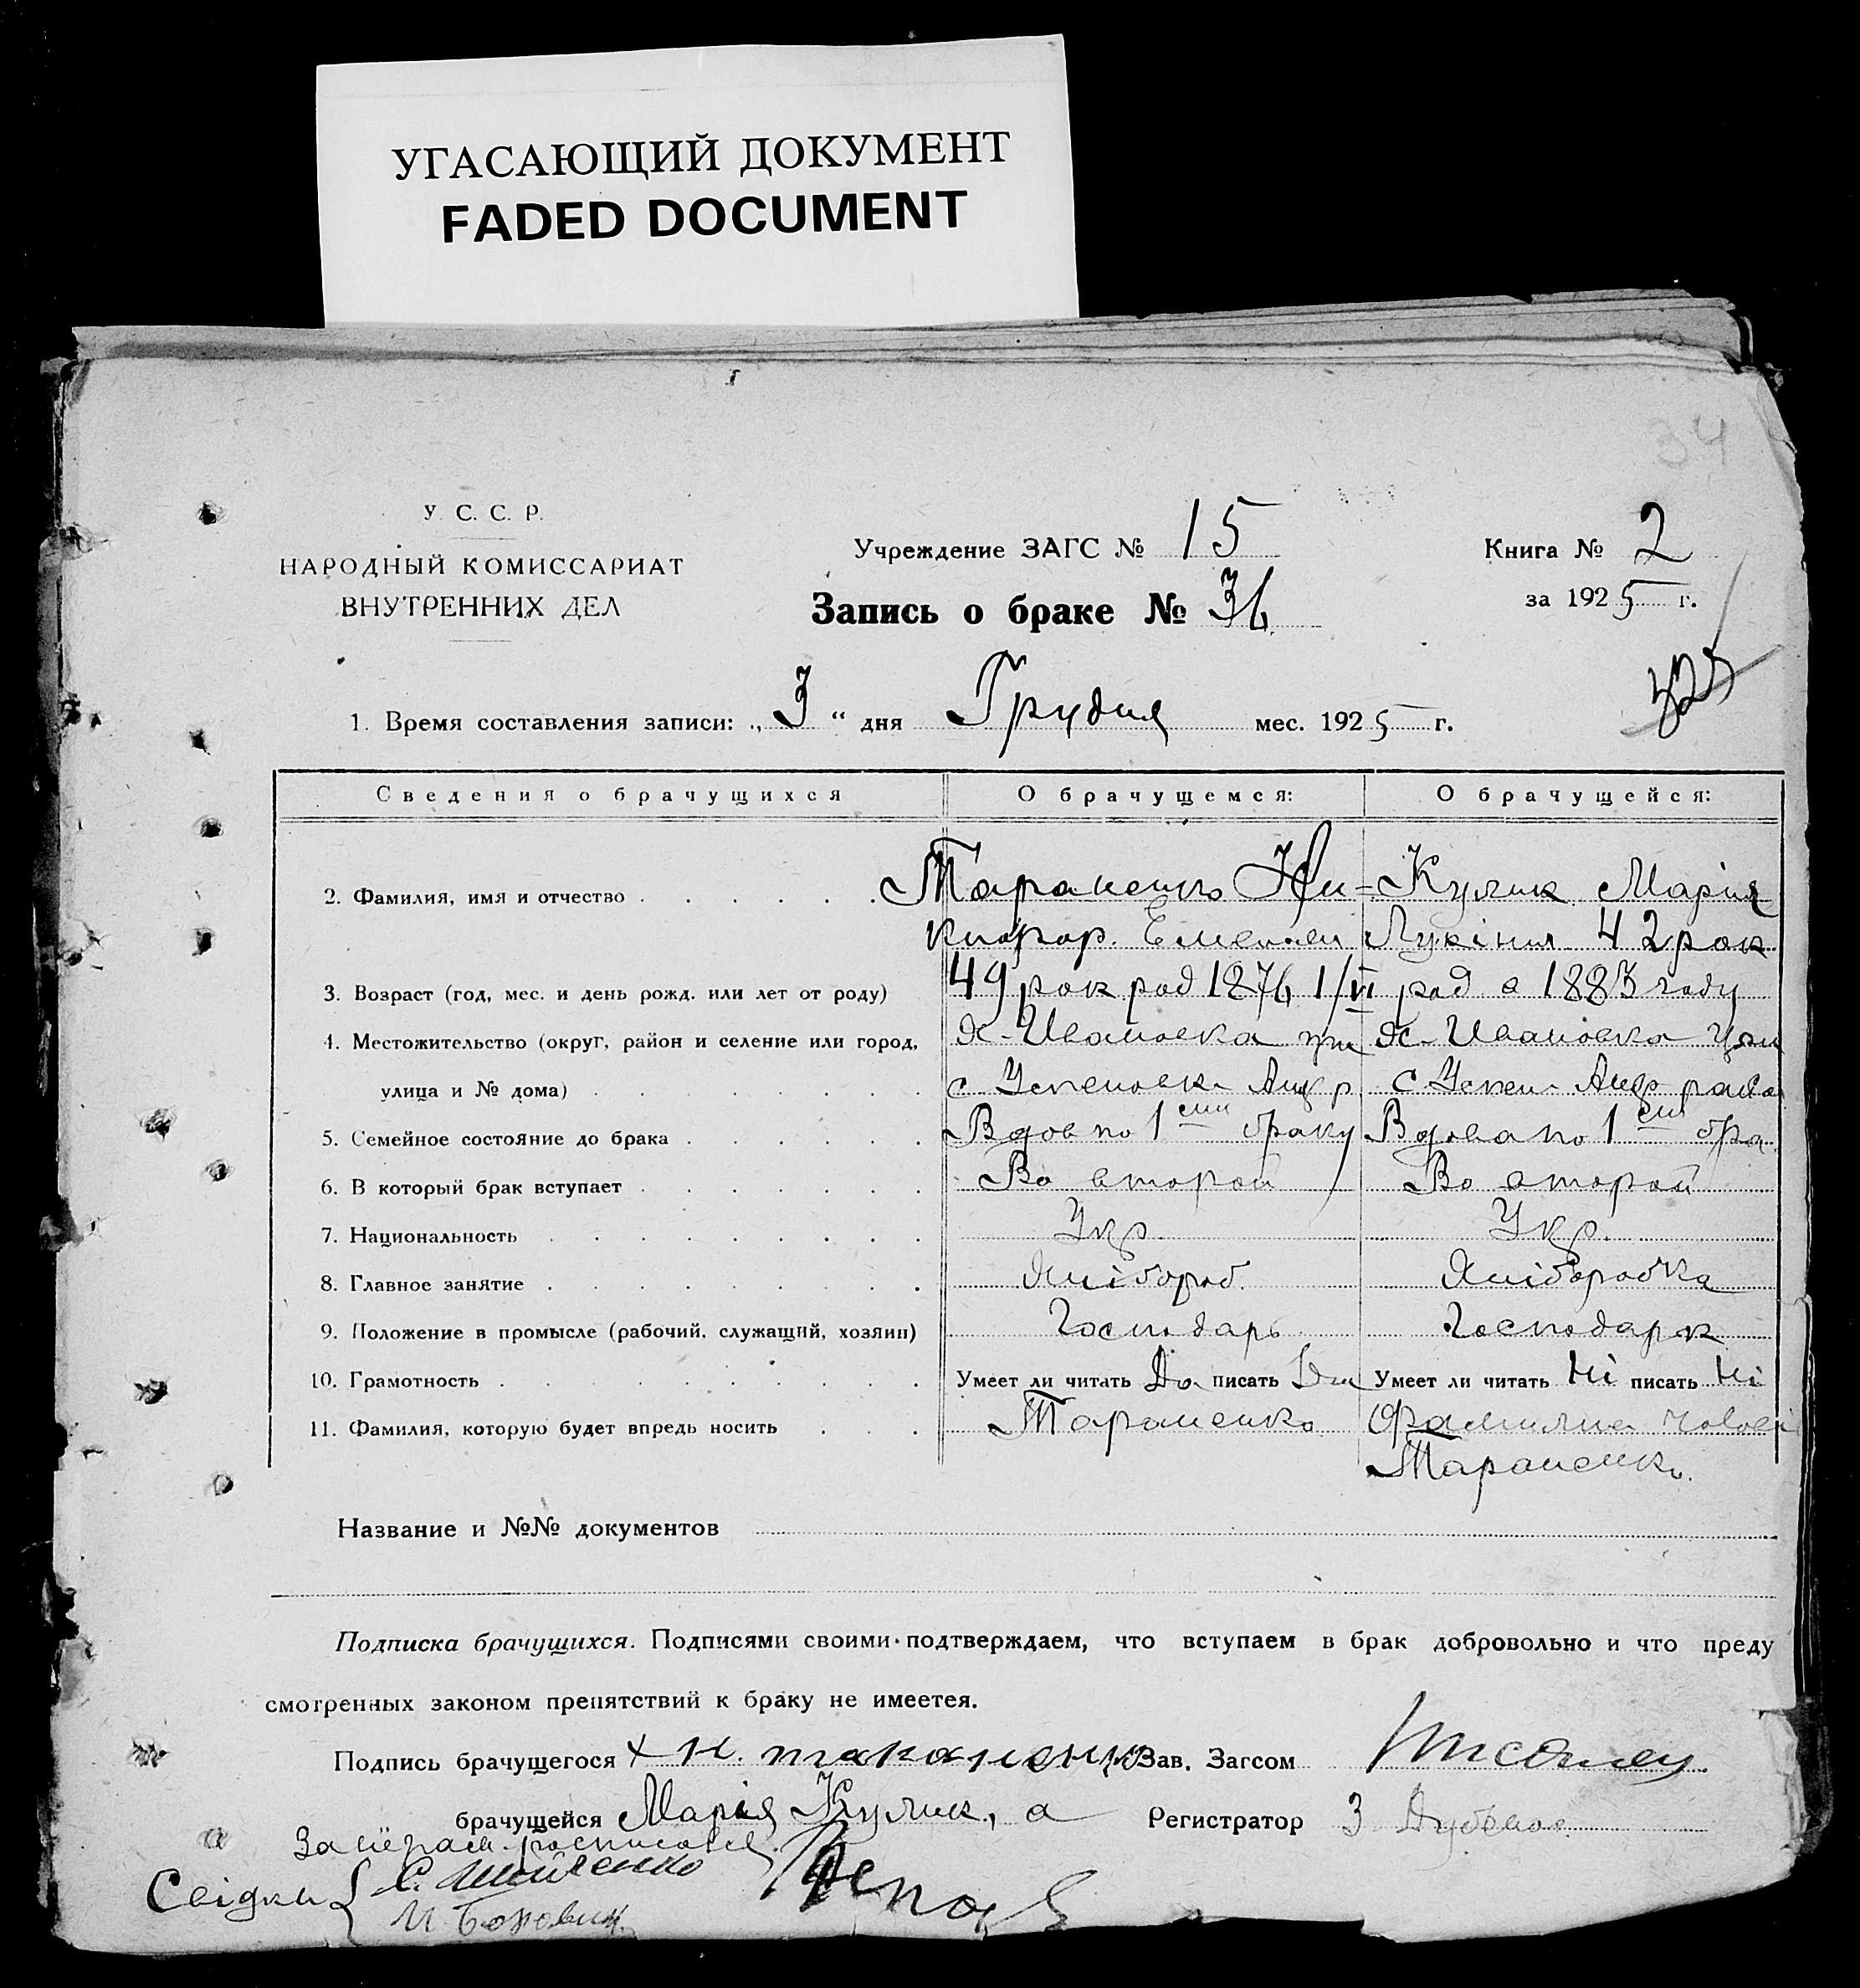 УГАСАЮЩИЙ ДОКУМЕНТ
FADED DOCUMENT
34
У. С. С. Р.
НАРОДНЫЙ КОМИССАРИАТ
ВНУТРЕННИХ ДЕЛ
Учреждение ЗАГС № 15
Книга № 2
за 1925 г.
Запись о браке № 36
1. Время составления записи: „ 3 “ дня Грудня мес. 1925 г.
Сведения о брачущихся О брачущемся: О брачущейся:
2. Фамилия, имя и отчество Тараненко Ни- Кулик Марія
кифор. Емельян Лукінія 42 рок
3. Возраст (год, мес. и день рожд. или лет от роду) 49 рок род 1876 1/VI род в 1883 году
4. Местожительство (округ, район и селение или город, х-Ивановка х-Ивановка
улица и № дома) с Успеновк Андр р с Успен- Андр район
5. Семейное состояние до брака Вдов по 1 браку Вдова по 1 бра
6. В который брак вступает Во второй Во второй
7. Национальность Укр. Укр.
8. Главное занятие Хлібороб. Хліборобка
9. Положение в промысле (рабочий, служащий, хозяин) Господарь Господарк
10. Грамотность Умеет ли читать Да писать Да Умеет ли читать Ні писать Ні
11. Фамилия, которую будет впредь носить Тараненко Фамилия
Тараненко.
Название и №№ документов
Подписка брачущихся. Подписями своими подтверждаем, что вступаем в брак добровольно и что преду
смотренных законом препятствий к браку не имеетея.
Подпись брачущегося + Н. Зав. Загсом
брачущейся Марія Кулик, а Регистратор З
Свідки